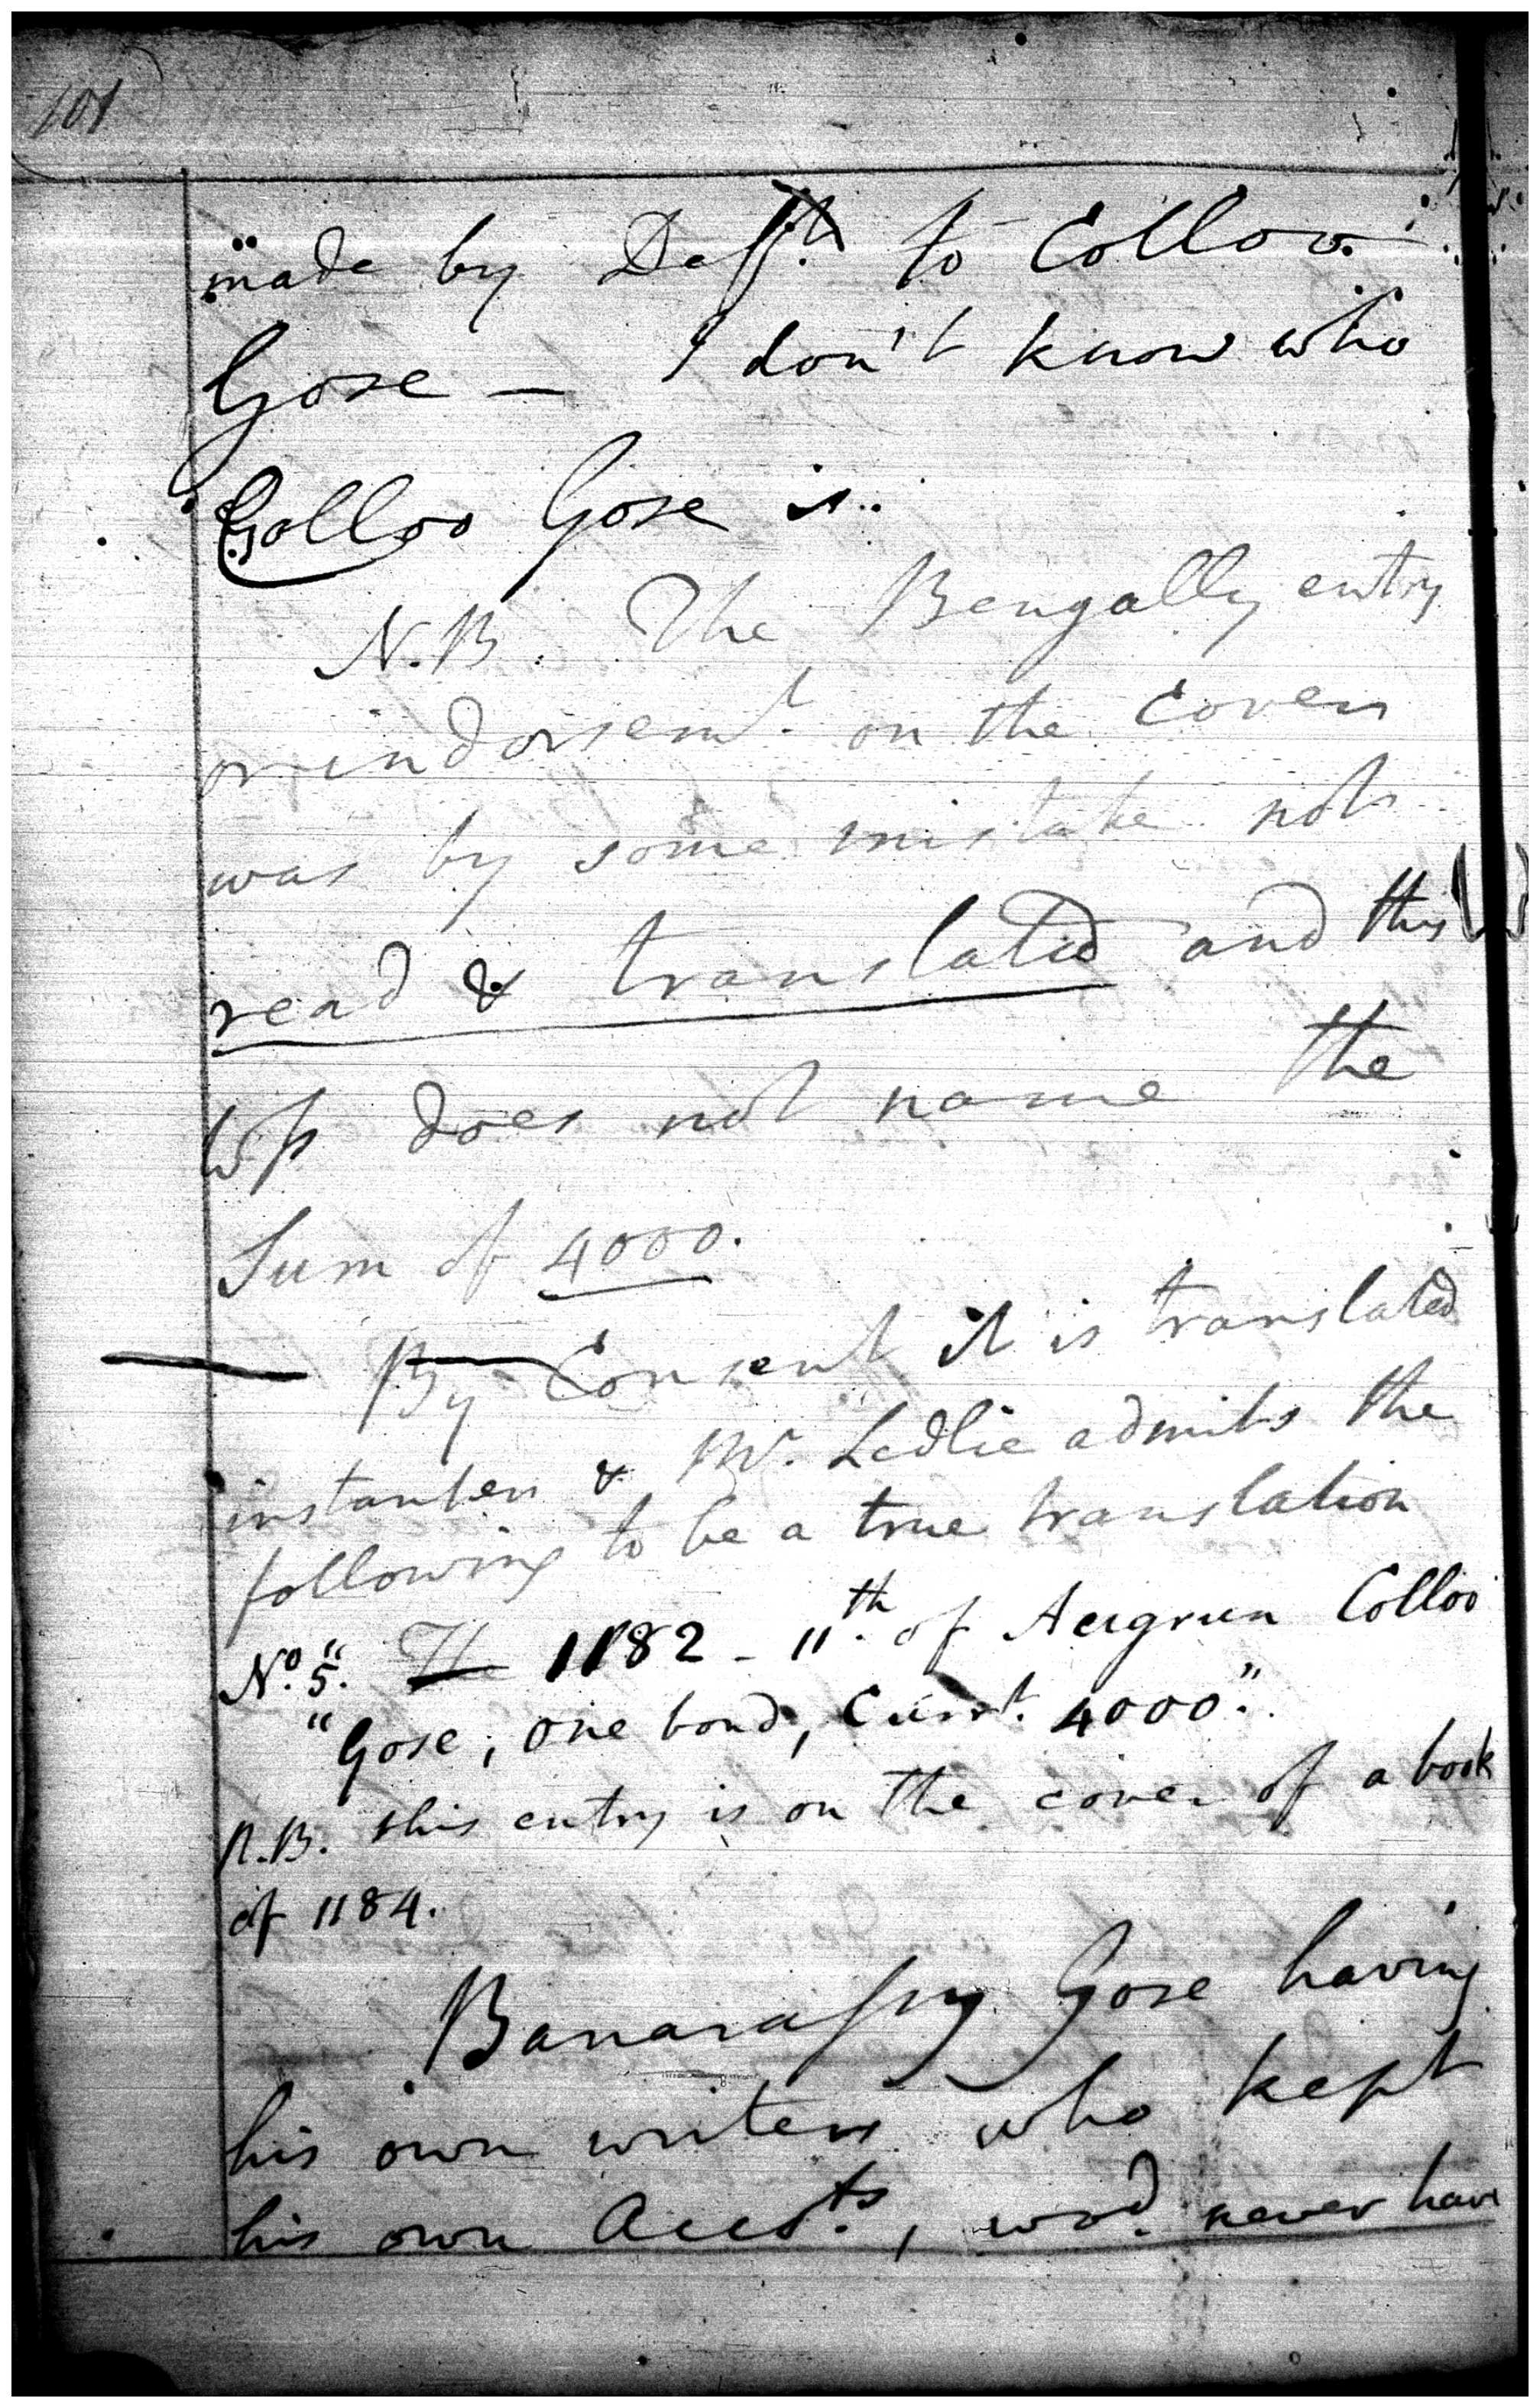 101
made by Deft. to Colloo
Gose — I don't know who
Golloo Gose is.
N.B. The Bengally entry
or indorsemt. on the Cover
was by some mistake not
read & translated and this
Wss does not name the
Sum of 4000.
— By Consent it is translated
instanter & Mr. Ledlie admits the
following to be a true translation
No. 5. "1182 - 11th. of Augrun Colloo
"Gose, one bond, Currt. 4000".
N.B. this entry is on the cover of a book
of 1184.
Banarassy Gose having
his own writers who kept
his own Accots., wod. never have